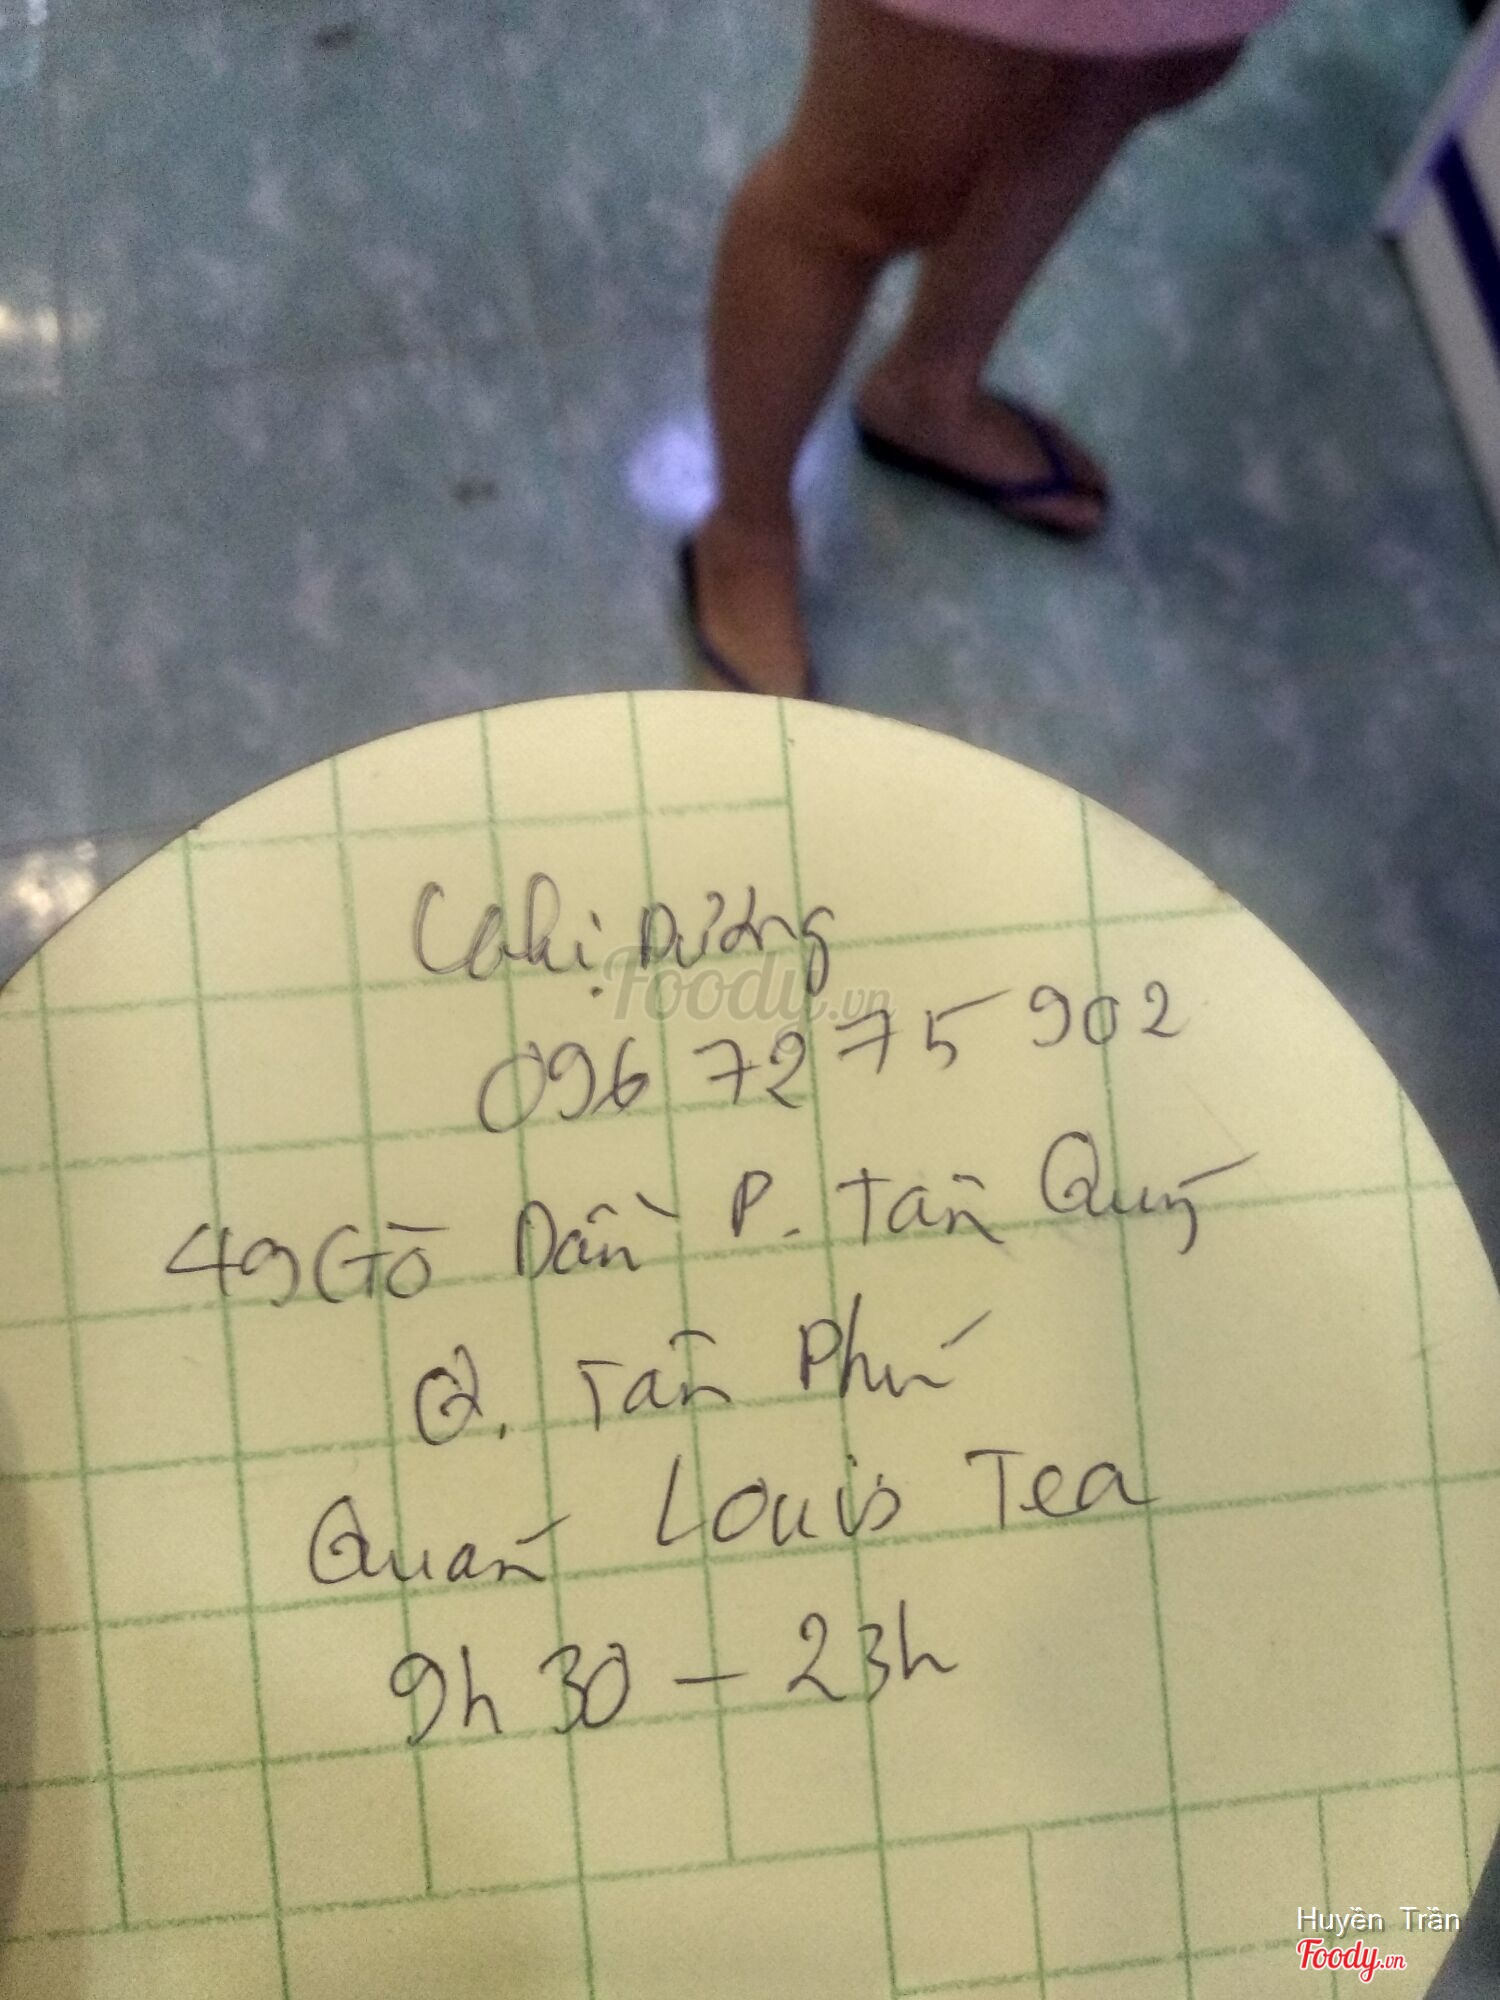 Chị Dương
Foody.vn
096 72 75 902
49 Gò Dầu P. Tân Quý
Q. Tân Phú
Quán Louis Tea
9h 30 - 23h
Huyền Trần
Foody.vn